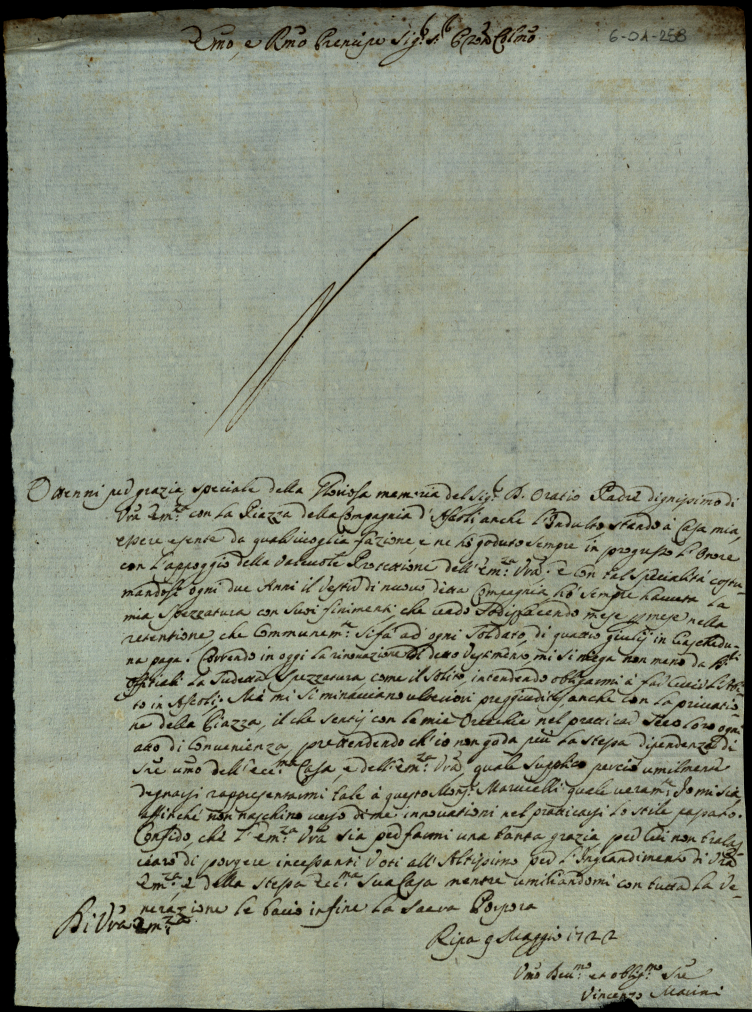 Emo, e Rmo Prencipe Sig.r S.r Pron Colmo
6-01-258
Ottenni per grazia speciale della Gloriosa memoria del Sig.r D. Oratio Padre dignissimo di
Vra Em.za con la Piazza della Compagnia d'Ascoli anche l'Indulto stando à Casa mia,
essere esente da qualsivoglia fazione, e ne hò goduto sempre in progresso l'Onore
con l'appoggio della valevole Protettione dell'Em.za Vra. e con tal specialità costu-
mandosi ogni due Anni il Vestir di nuovo detta Compagnia hò sempre havuta la
mia Spezzatura con suoi finimenti che vado sodisfacendo mese p mese nella
retentione che communem.te si fà ad ogni Soldato, di quattro giulij in Ciascheda-
na paga. Correndo in oggi la rinovazione di detto Vestimento, mi si niega non meno da
Offitiali la sudetta Spezzatura come il solito, intendendo obligarmi à far l'Abi-
to in Ascoli. Mà mi si minacciano ulteriori preggiuditij anche con la privatio-
ne della Piazza, il che sentij con le mie Orecchie nel pratticar seco loro ogni
atto di Convenienza, prettendendo ch'io non goda più la stessa dipendenza di
Sre umo dell'Ecc.ma Casa, e dell'Em.za Vra, quale supplico perciò umilmente
degnarsi rappresentarmi tale à questo Mons.r Marucelli quale veram.te Io mi sia,
affinchè non naschino verso di me innovationi nel praticarsi lo stile passato.
Confido, che l'Em.za Vra sia per farmi una tanta grazia per cui non tralas-
ciarò di porgere incessanti Voti all'Altissimo per l'Ingrandimento di Vra
Em.za, e della stessa Ecc.ma Sua Casa mentre umiliandomi con tutta la Ve-
nerazione le bacio in fine la Sacra Porpora
Di Vra Em.za
Ripa 9 Maggio 1722
Umo Dev.mo et oblig.mo Sre
Vincenzo Marini